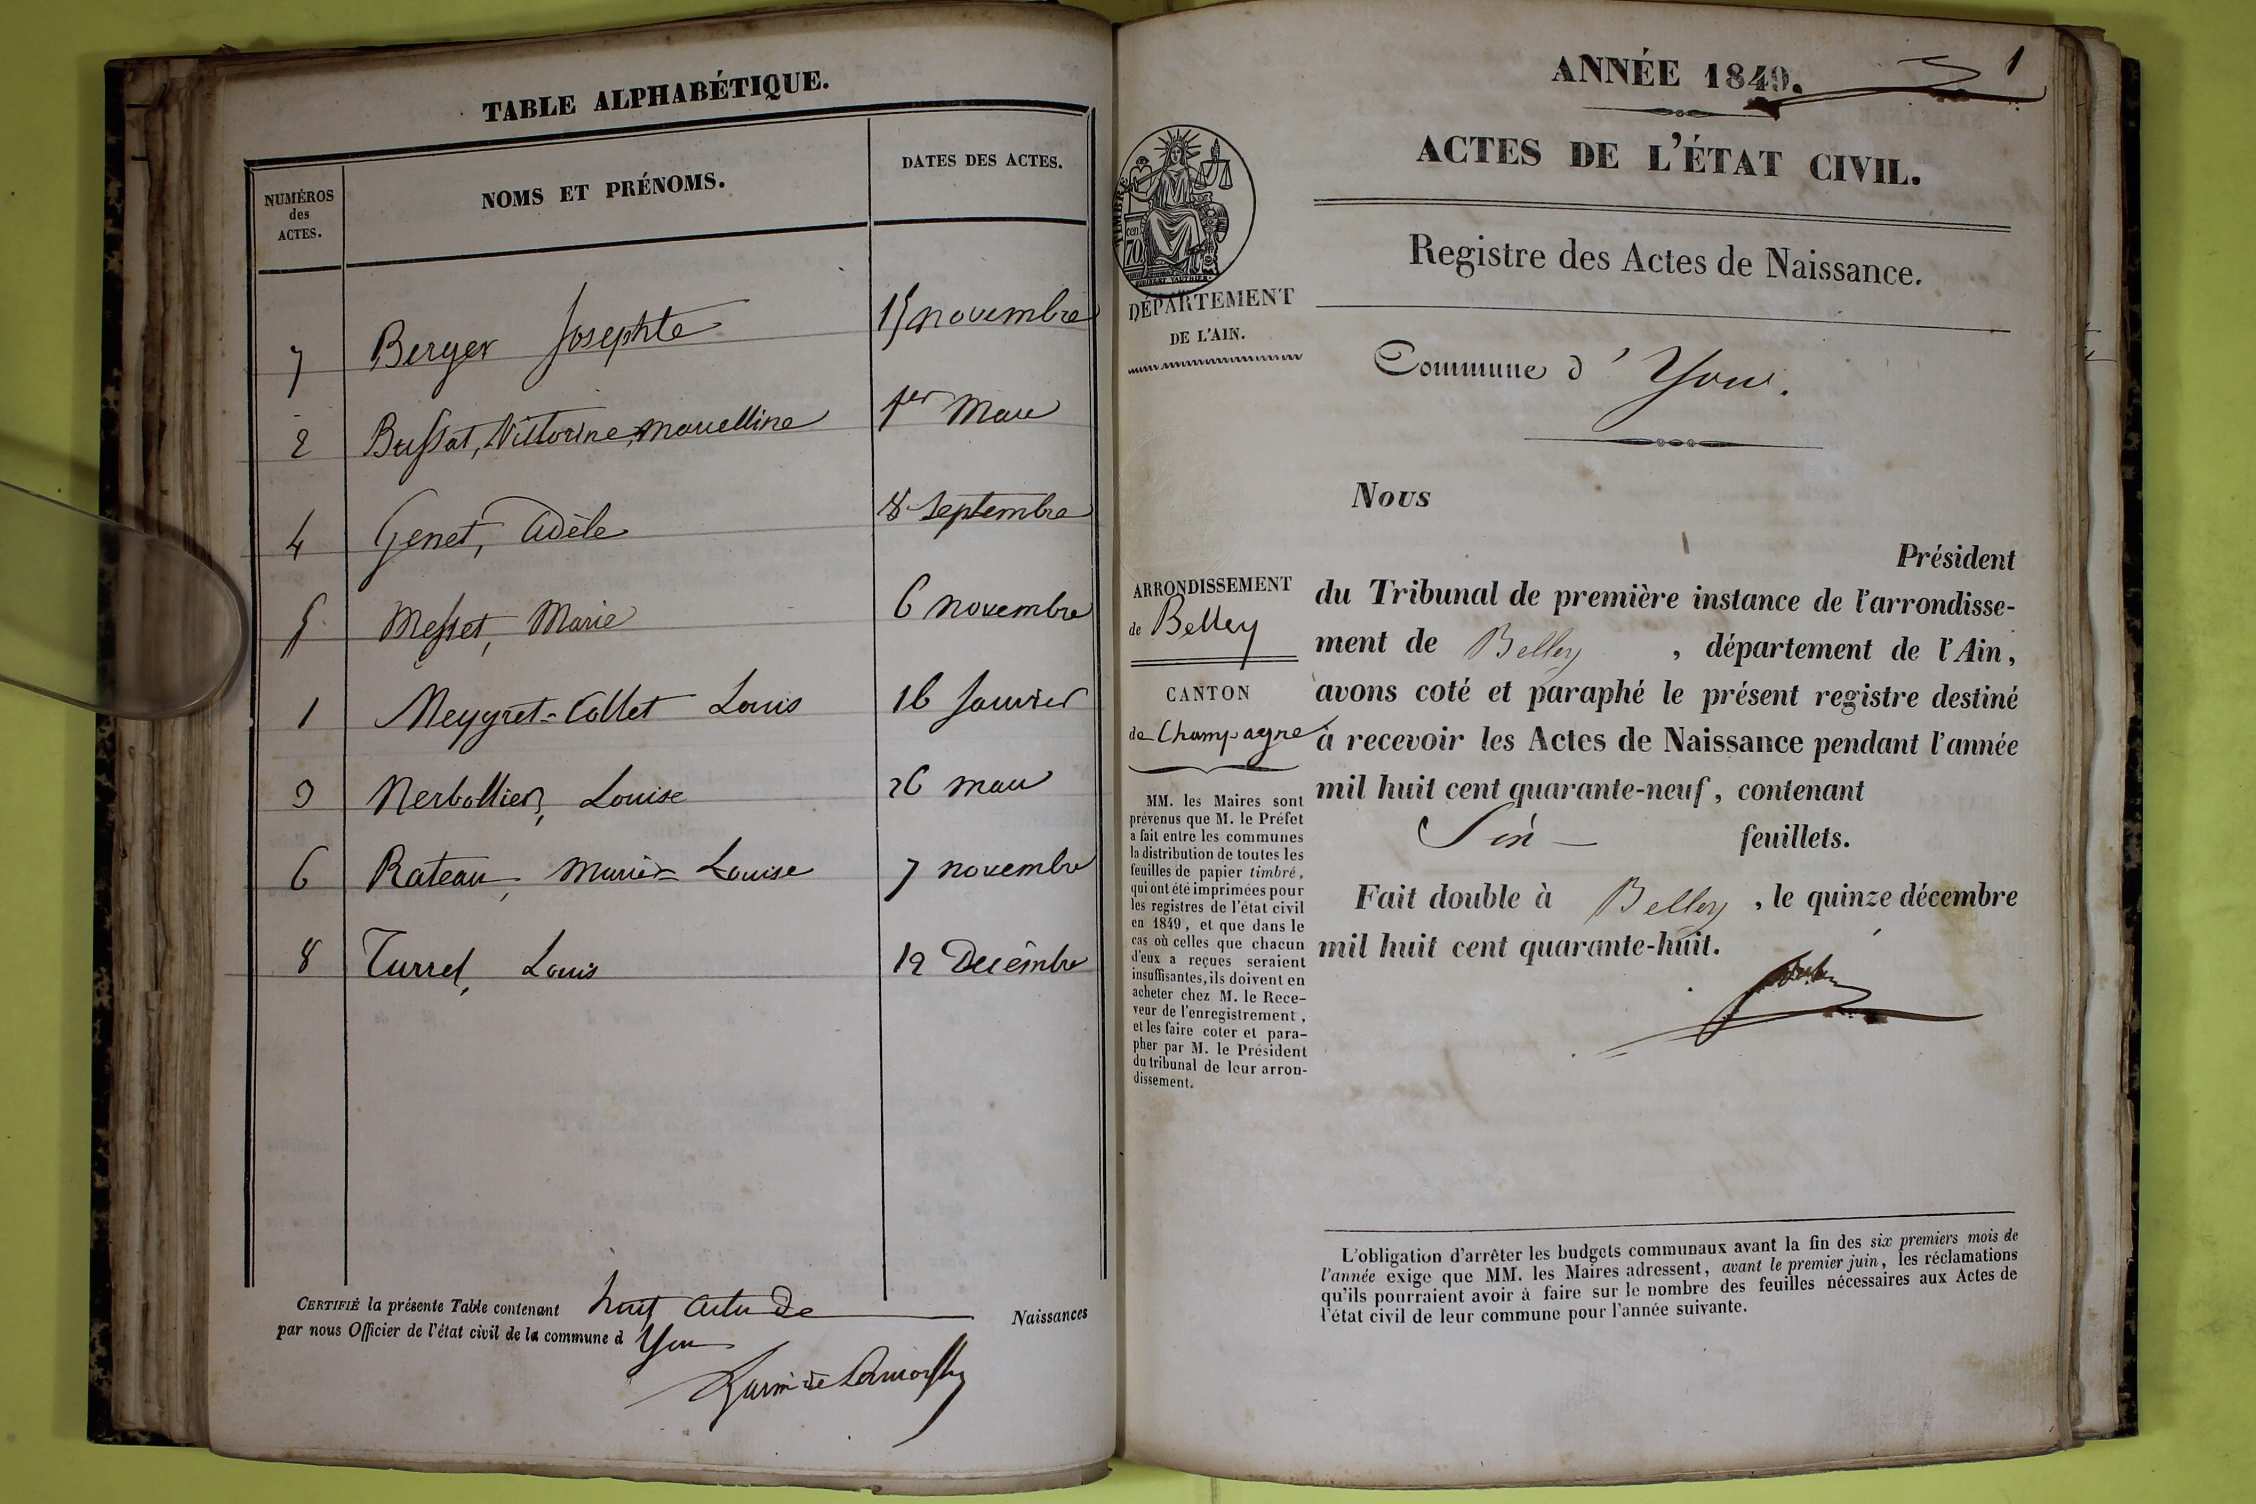 TABLE ALPHABÉTIQUE.
NUMÉROS
des
ACTES.
NOMS ET PRÉNOMS.
DATES DES ACTES.
7 Berger Josephte 15 novembre
2 Bussat, Victorine, marcelline 1er Mars
4 Genet, Adèle 8 Septembre
5 Messet, Marie 6 novembre
1 Meygret-Collet Louis 16 Janvier
3 Nerbollier, Louise 26 mars
6 Rateau, Marie-Louise 7 novembre
8 Turrel, Louis 19 Decembre
CERTIFIÉ la présente Table contenant huit actes de Naissances
par nous Officier de l'état civil de la commune d Yon
1
ANNÉE 1849.
ACTES DE L'ÉTAT CIVIL.
Registre des Actes de Naissance.
TIMBRE
cen
70
DÉPARTEMENT
DE L'AIN.
Commune d' Yon.
Nous
Président
ARRONDISSEMENT
de Belley
CANTON
de Champagne
MM. les Maires sont
prévenus que M. le Préfet
a fait entre les communes
la distribution de toutes les
feuilles de papier timbré,
qui ont été imprimées pour
les registres de l'état civil
en 1849, et que dans le
cas où celles que chacun
d'eux a reçues seraient
insuffisantes, ils doivent en
acheter chez M. le Rece-
veur de l'enregistrement,
et les faire coter et para-
pher par M. le Président
du tribunal de leur arron-
dissement.
du Tribunal de première instance de l'arrondisse-
ment de Belley, département de l'Ain,
avons coté et paraphé le présent registre destiné
à recevoir les Actes de Naissance pendant l'année
mil huit cent quarante-neuf, contenant
Six feuillets.
Fait double à Belley, le quinze décembre
mil huit cent quarante-huit.
L'obligation d'arrêter les budgets communaux avant la fin des six premiers mois de
l'année exige que MM. les Maires adressent, avant le premier juin, les réclamations
qu'ils pourraient avoir à faire sur le nombre des feuilles nécessaires aux Actes de
l'état civil de leur commune pour l'année suivante.